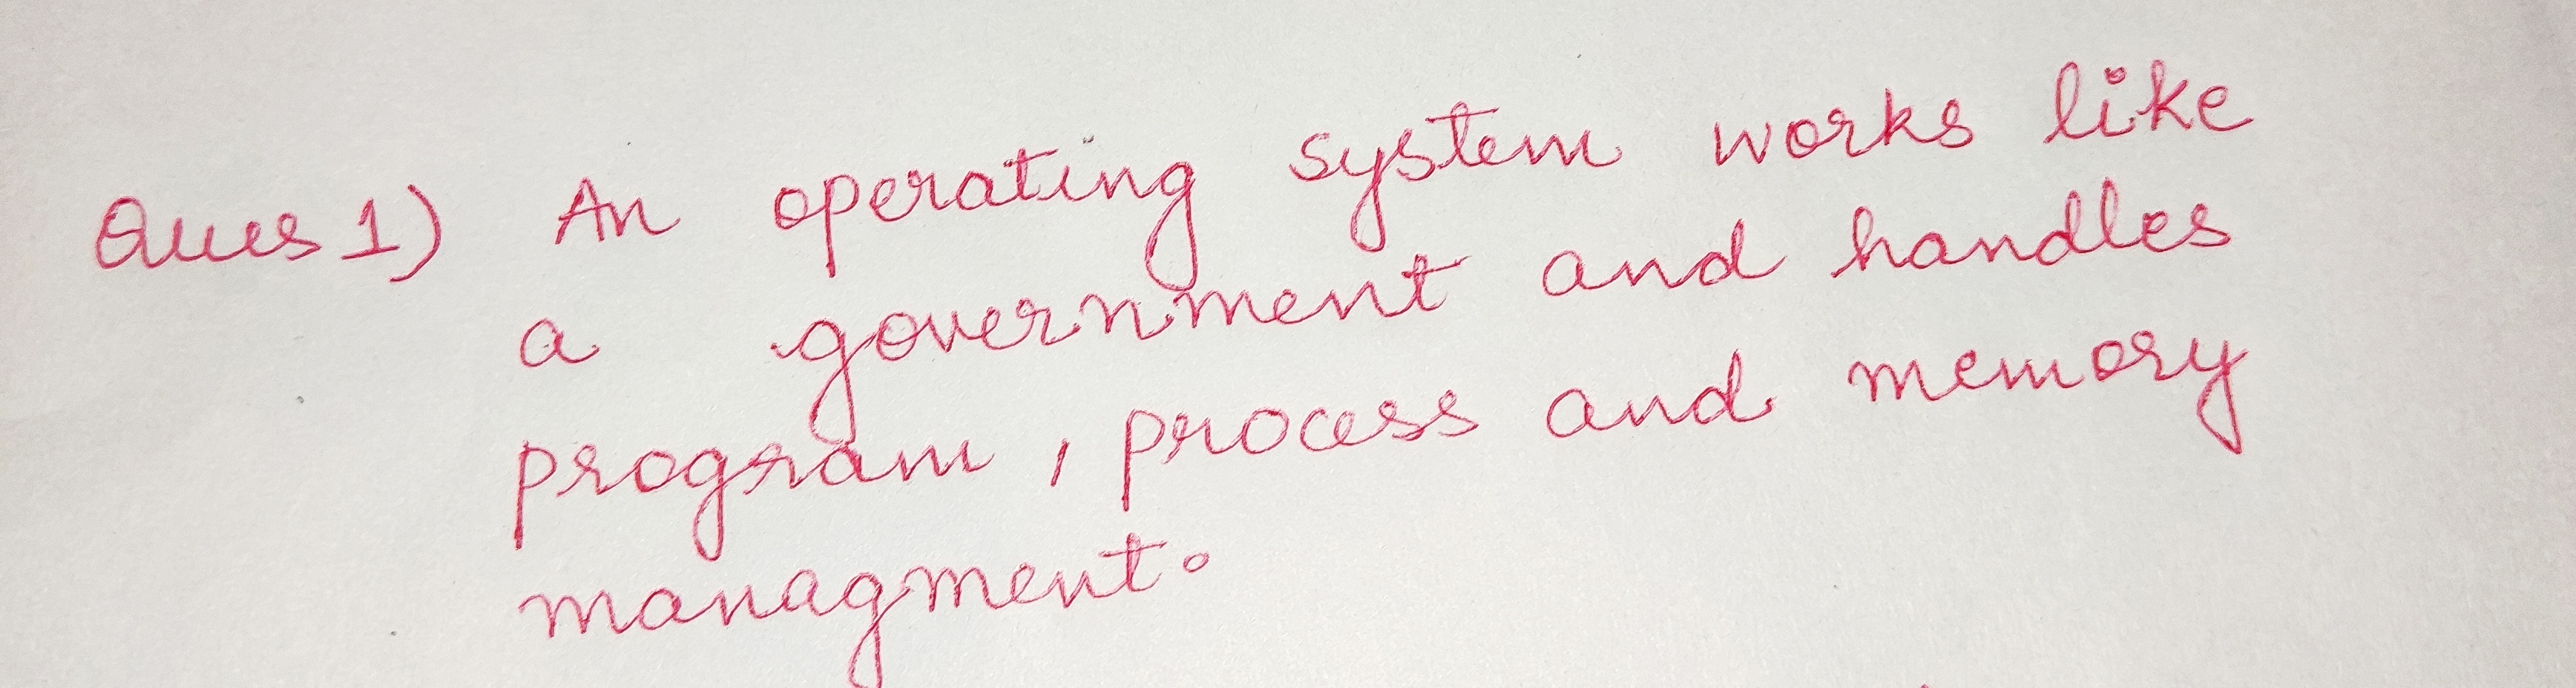 Ques 1) An operating system works like
a government and handles
program, process and memory
managment.